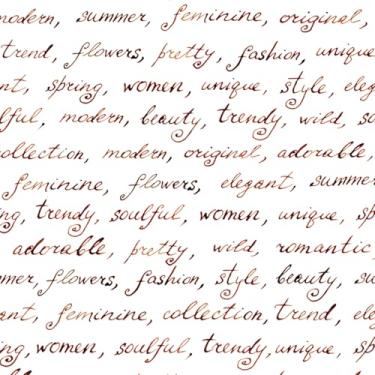 modern, summer, feminine, original,
trend, flowers, pretty, fashion, unique
nt, spring, women, unique, style, eleg
lful, modern, beauty, trendy, wild, so
collection, modern, original, adorable,
feminine, flowers, elegant, summer
ng, trendy, soulful, women, unique, sp
adorable, pretty, wild, romantic,
mmer, flowers, fashion, style, beauty, sum
ant, feminine, collection, trend, ele
ing, women, soulful, trendy, unique, sp